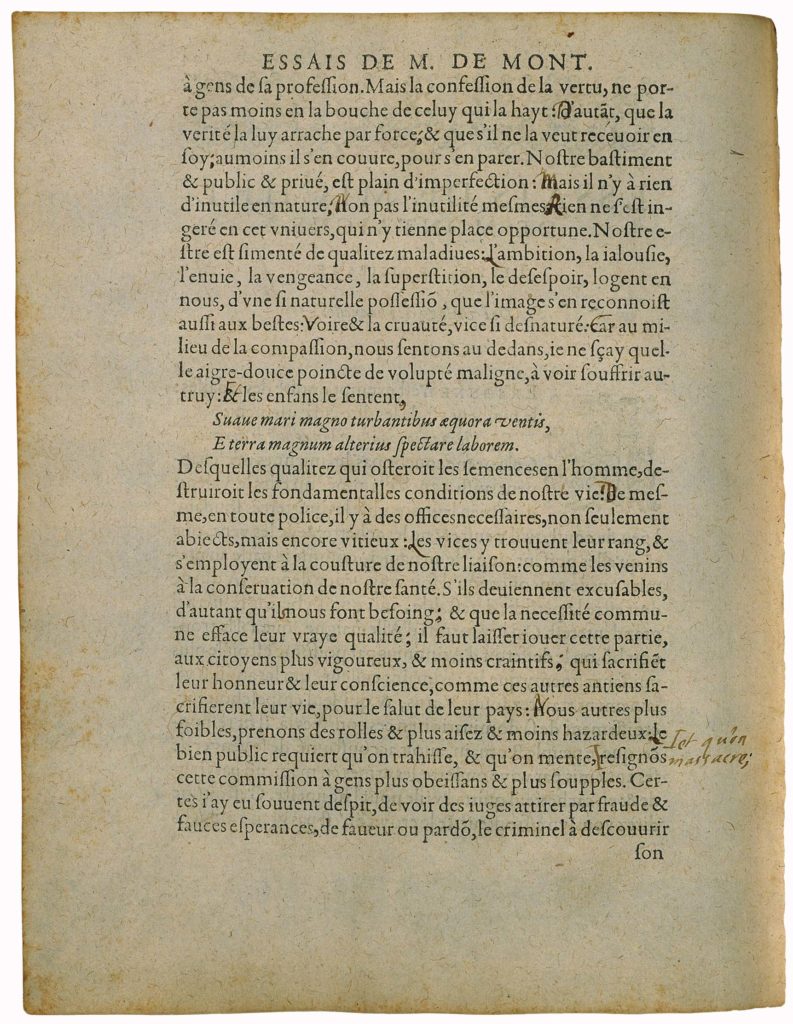 ESSAIS DE M. DE MONT.
à gens de ſa profeſſion. Mais la confeſſion de la vertu, ne por-
te pas moins en la bouche de celuy qui la hayt: D'autãt, que la
verité la luy arrache par force; & que s'il ne la veut receuoir en
ſoy; aumoins il s'en couure, pour s'en parer. Noſtre baſtiment
& public & priué, eſt plain d'imperfection: Mais il n'y à rien
d'inutile en nature; Non pas l'inutilité meſmes, Rien ne s'eſt in-
geré en cet vniuers, qui n'y tienne place opportune. Noſtre e-
ſtre eſt ſimenté de qualitez maladiues: L'ambition, la ialouſie,
l'enuie, la vengeance, la ſuperſtition, le deſeſpoir, logent en
nous, d'vne ſi naturelle poſſeſſiõ, que l'image s'en reconnoiſt
auſſi aux beſtes: Voire & la cruauté, vice ſi deſnaturé: Car au mi-
lieu de la compaſſion, nous ſentons au dedans, ie ne ſçay quel-
le aigre-douce poincte de volupté maligne, à voir ſouffrir au-
truy: Et les enfans le ſentent,
Suaue mari magno turbantibus æquora ventis,
E terra magnum alterius ſpectare laborem.
Deſquelles qualitez qui oſteroit les ſemences en l'homme, de-
ſtruiroit les fondamentalles conditions de noſtre vie: De meſ-
me, en toute police, il y à des offices neceſſaires, non ſeulement
abiects, mais encore vitieux: Les vices y trouuent leur rang, &
s'employent à la couſture de noſtre liaiſon: comme les venins
à la conſeruation de noſtre ſanté. S'ils deuiennent excuſables,
d'autant qu'ils nous font beſoing; & que la neceſſité commu-
ne efface leur vraye qualité; il faut laiſſer iouer cette partie,
aux citoyens plus vigoureux, & moins craintifs; qui ſacrifiẽt
leur honneur & leur conſcience, comme ces autres antiens ſa-
crifierent leur vie, pour le ſalut de leur pays: Nous autres plus
foibles, prenons des rolles & plus aiſez & moins hazardeux: Le
bien public requiert qu'on trahiſſe, & qu'on mente, reſignõs
et qu'on
massacre;
cette commiſſion à gens plus obeiſſans & plus ſoupples. Cer-
tes i'ay eu ſouuent deſpit, de voir des iuges attirer par fraude &
fauces eſperances, de faueur ou pardõ, le criminel à deſcouurir
ſon